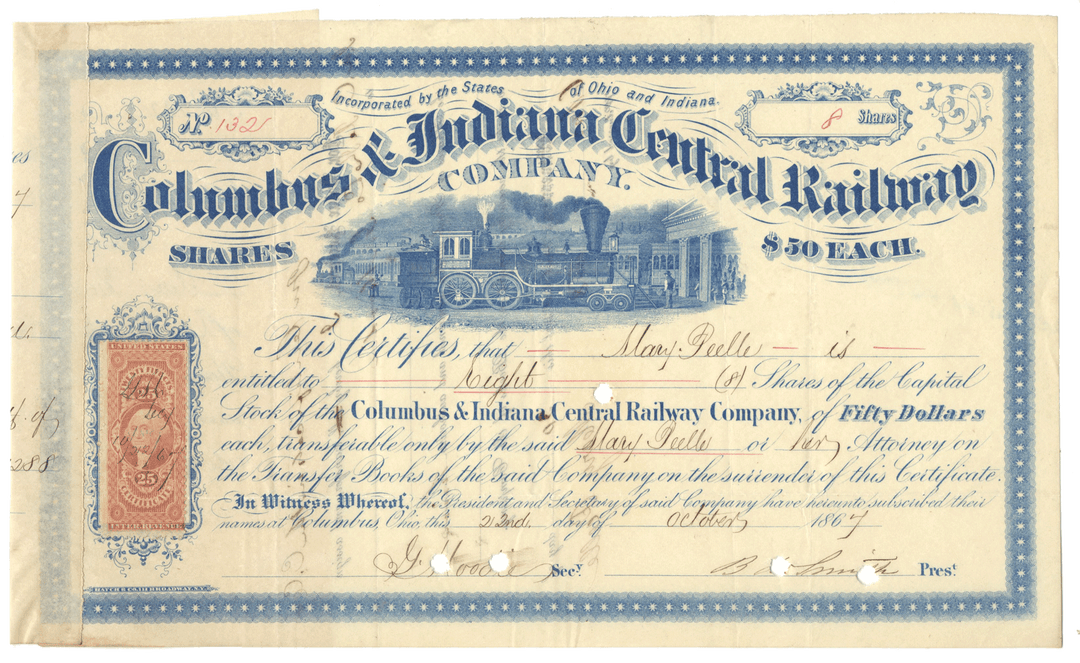 Incorporated by the States of Ohio and Indiana.
No 132
8 Shares
Columbus & Indiana Central Railway
COMPANY.
SHARES
$50 EACH.
This Certifies, that Mary Peelle is
entitled to Eight (8) Shares of the Capital
Stock of the Columbus & Indiana Central Railway Company, of Fifty Dollars
each, transferable only by the said Mary Peelle or her Attorney on
the Transfer Books of the said Company on the surrender of this Certificate.
In Witness Whereof, the President and Secretary of said Company have hereunto subscribed their
names at Columbus, Ohio, this 22nd. day of October 1867
G. Moodie Secy
B E Smith Prest
UNITED STATES
25
CERTIFICATE
INTER. REVENUE
288